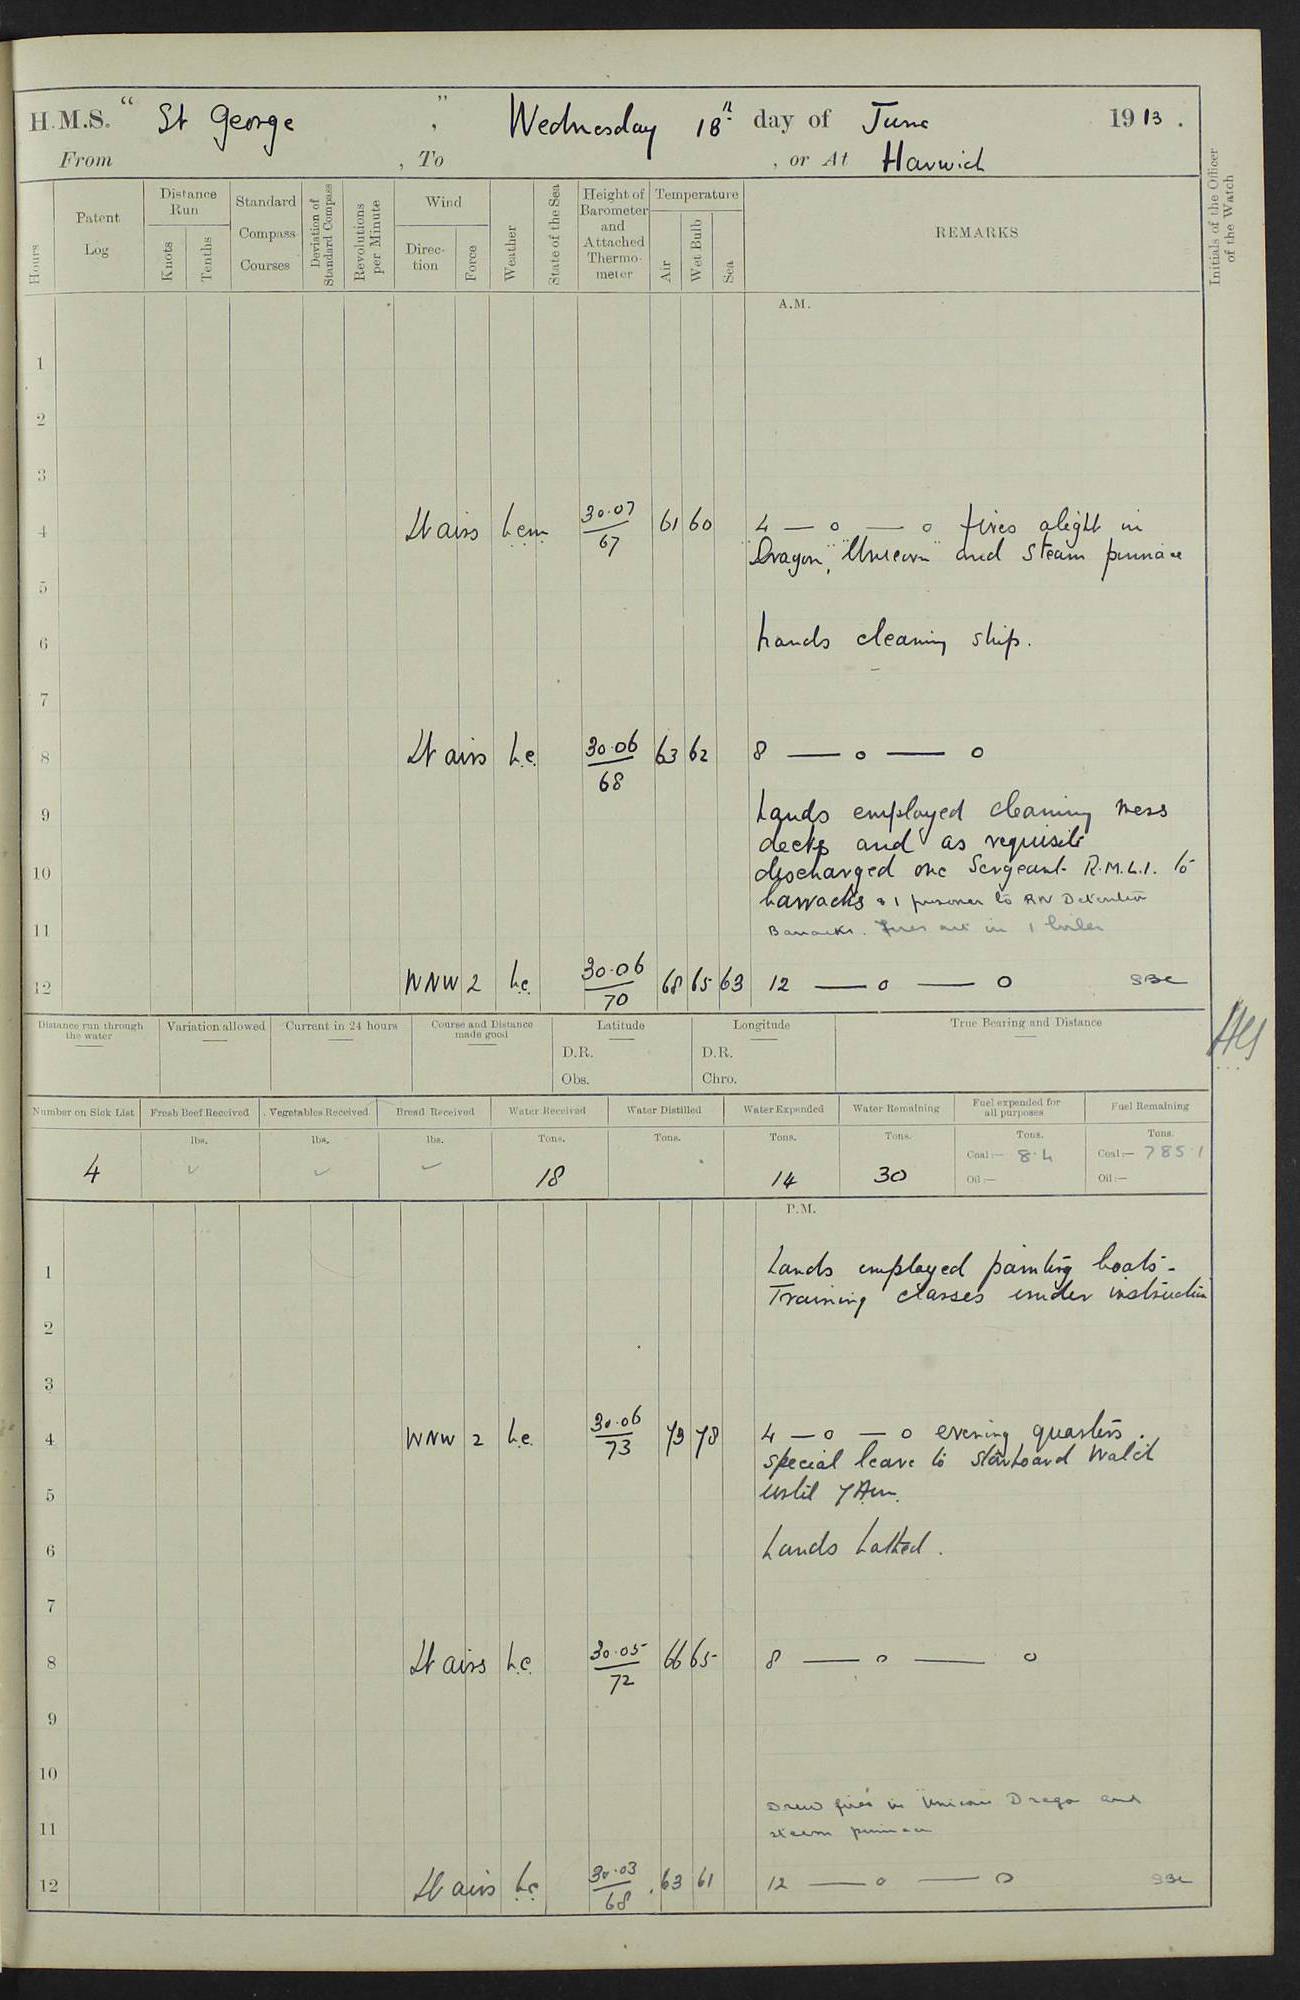 H.M.S. " St George ", Wednesday 18th day of June 1913.
From , To , or At Harwich
Hours
Patent Log
Distance Run
Knots
Tenths
Standard Compass Courses
Deviation of Standard Compass
Revolutions per Minute
Wind
Direction
Force
Weather
State of the Sea
Height of Barometer and Attached Thermometer
Temperature
Air
Wet Bulb
Sea
REMARKS
Initials of the Officer of the Watch
A.M.
1
2
3
4 Lt airs b.c.m 30.07/67 61 60 4 — o — o fires alight in
"Dragon", "Unicorn" and steam pinnace
5
6 hands cleaning ship.
7
8 Lt airs b.c. 30.06/68 63 62 8 — o — o
9 hands employed cleaning mess
decks and as requisite
10 discharged one Sergeant R.M.L.I. to
barracks & 1 prisoner to RN Detention
11 Barracks. Fires out in 1 boiler
12 WNW 2 b.c. 30.06/70 68 65 63 12 — o — o SBC
Distance run through the water
Variation allowed
Current in 24 hours
Course and Distance made good
Latitude
D.R.
Obs.
Longitude
D.R.
Chro.
True Bearing and Distance
Number on Sick List
Fresh Beef Received
Vegetables Received
Bread Received
Water Received
Water Distilled
Water Expended
Water Remaining
Fuel expended for all purposes
Fuel Remaining
lbs. lbs. lbs. Tons. Tons. Tons. Tons. Tons. Tons.
Coal:— 8.4 Coal:— 785.1
4 ✓ ✓ ✓ 18 14 30 Oil:— Oil:—
P.M.
1 hands employed painting boats-
Training classes under instruction
2
3
4 WNW 2 b.c. 30.06/73 79 78 4 — o — o evening quarters.
special leave to starboard watch
5 until 7 Am.
6 hands bathed.
7
8 Lt airs b.c. 30.05/72 66 65 8 — o — o
9
10
Drew fires in Unicorn Dragon and
11 steam pinnace
12 Lt airs b.c 30.03/68 63 61 12 — o — o SBC